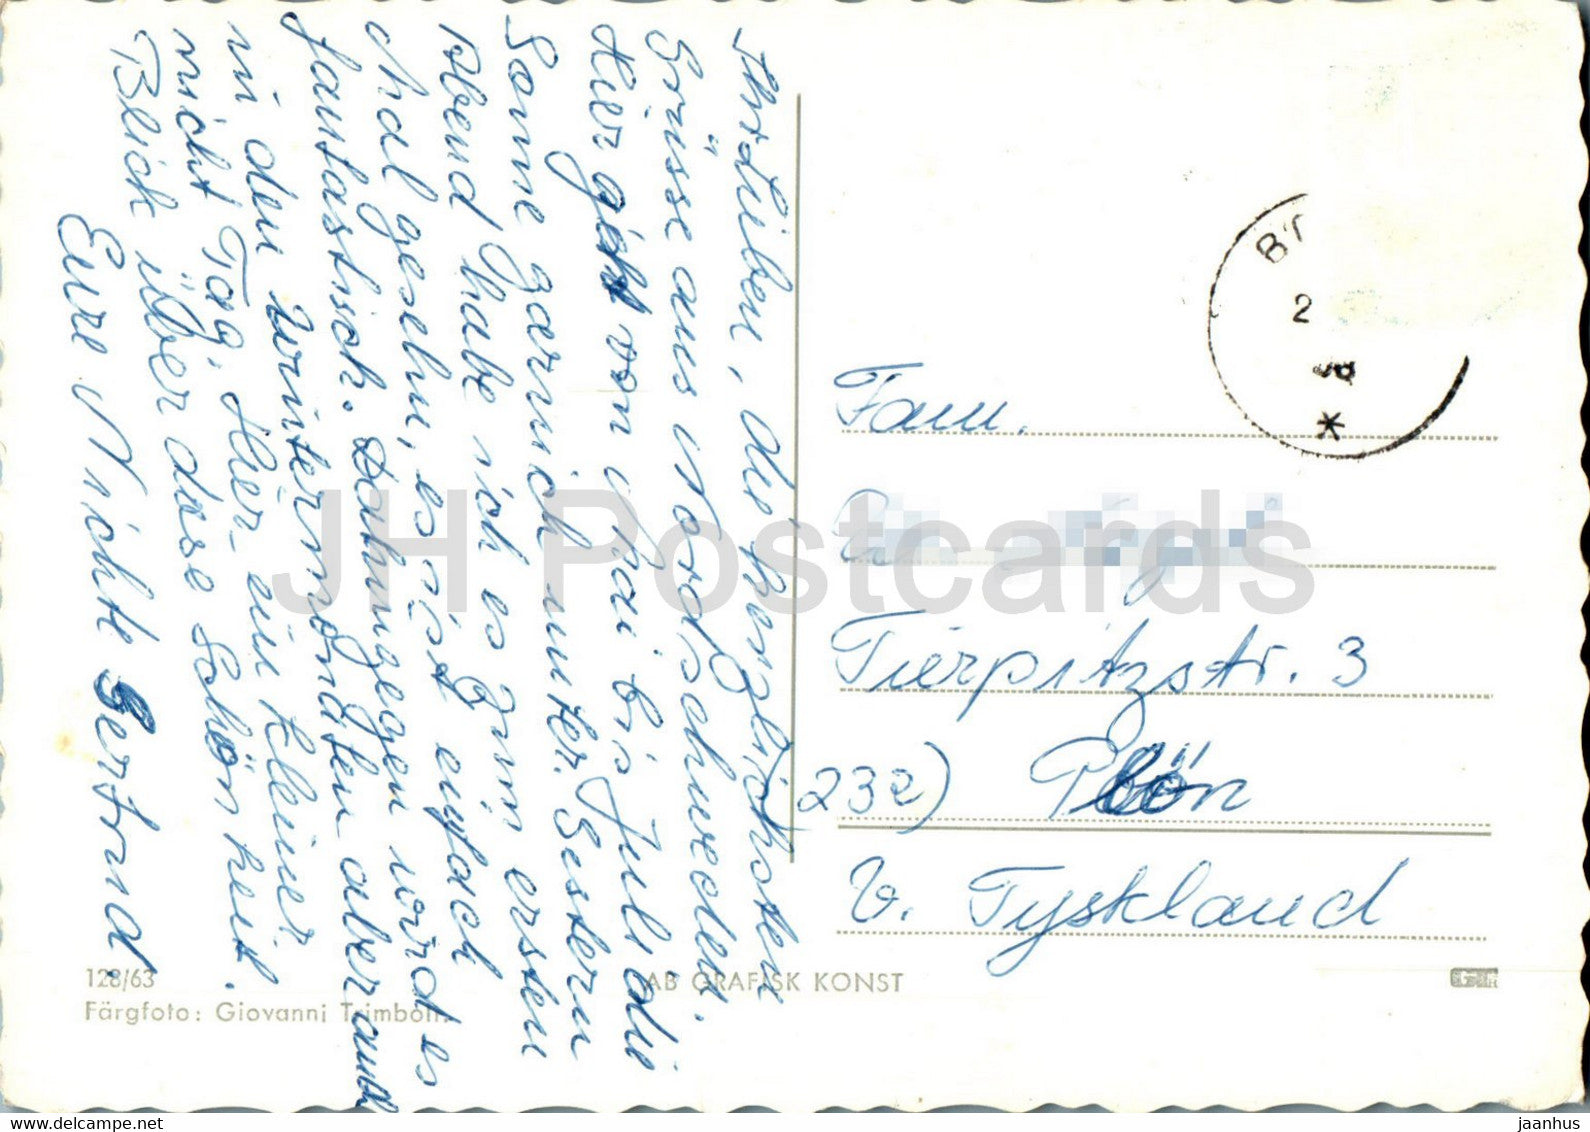 Ihr Lieben, die herzlichsten
Grüsse aus Nordschweden.
Hier geht von Mai bis Juli die
Sonne garnich unter. Gestern
Abend habe ich es zum ersten
Mal gesehn, es ist einfach
fantastisch. Dahingegen wird es
in den Wintermonaten aber auch
nicht Tag. Hier ein kleiner
Blick über diese Schönheit.
Eure Nichte Gertrud.
Fam.
Tierpitzstr. 3
232) Plön
V. Tyskland
B
2
128/63
AB GRAFISK KONST
Färgfoto: Giovanni Trimboli.
JH Postcards
jaanhus